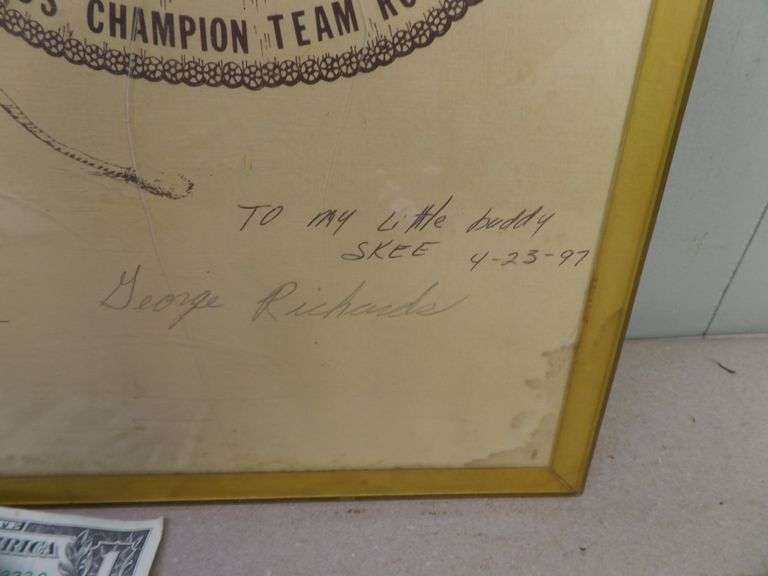 CHAMPION TEAM
TO my Little buddy
SKEE 4-23-97
George Richards
ERICA
1